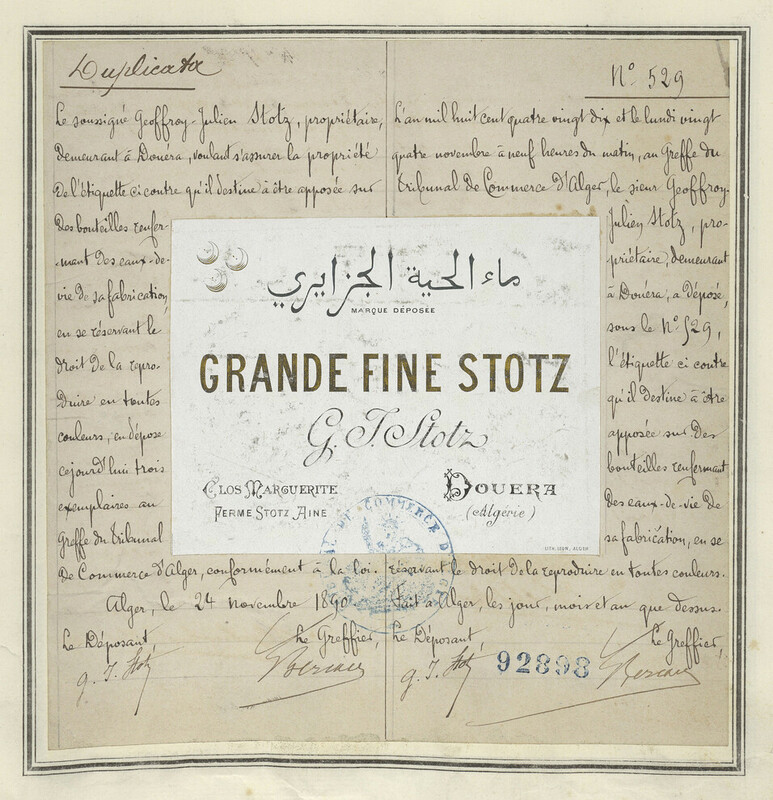 Duplicata
Le soussigné Geoffroy-Julien Stotz, propriétaire,
demeurant à Douéra, voulant s'assurer la propriété
de l'étiquette ci contre qu'il destine à être apposée sur
des bouteilles renfer-
-mant des eaux-de-
vie de sa fabrication,
en se réservant le
droit de la repro-
duire en toutes
couleurs, en dépose
cejourd'hui trois
exemplaires au
Greffe du Tribunal
de Commerce d'Alger, conformément à la loi.
Alger, le 24 novembre 1890
Le Déposant,
Le Greffier,
g. J. Stotz
N° 529
L'an mil huit cent quatre vingt dix et le lundi vingt
quatre novembre à neuf heures du matin, au Greffe du
Tribunal de Commerce d'Alger, le sieur Geoffroy-
Julien Stotz, pro-
priétaire, demeurant
à Douéra, a déposé,
sous le N° 529,
l'étiquette ci contre
qu'il destine à être
apposée sur des
bouteilles renfermant
des eaux-de-vie de
sa fabrication, en se
réservant le droit de la reproduire en toutes couleurs.
Fait à Alger, les jour, mois et an que dessus.
Le Déposant,
Le Greffier,
g. J. Stotz
92898
ماء الحية الجزايري
MARQUE DÉPOSÉE
GRANDE FINE STOTZ
G. J. Stotz
CLOS MARGUERITE
FERME STOTZ AINE
DOUERA
(Algérie)